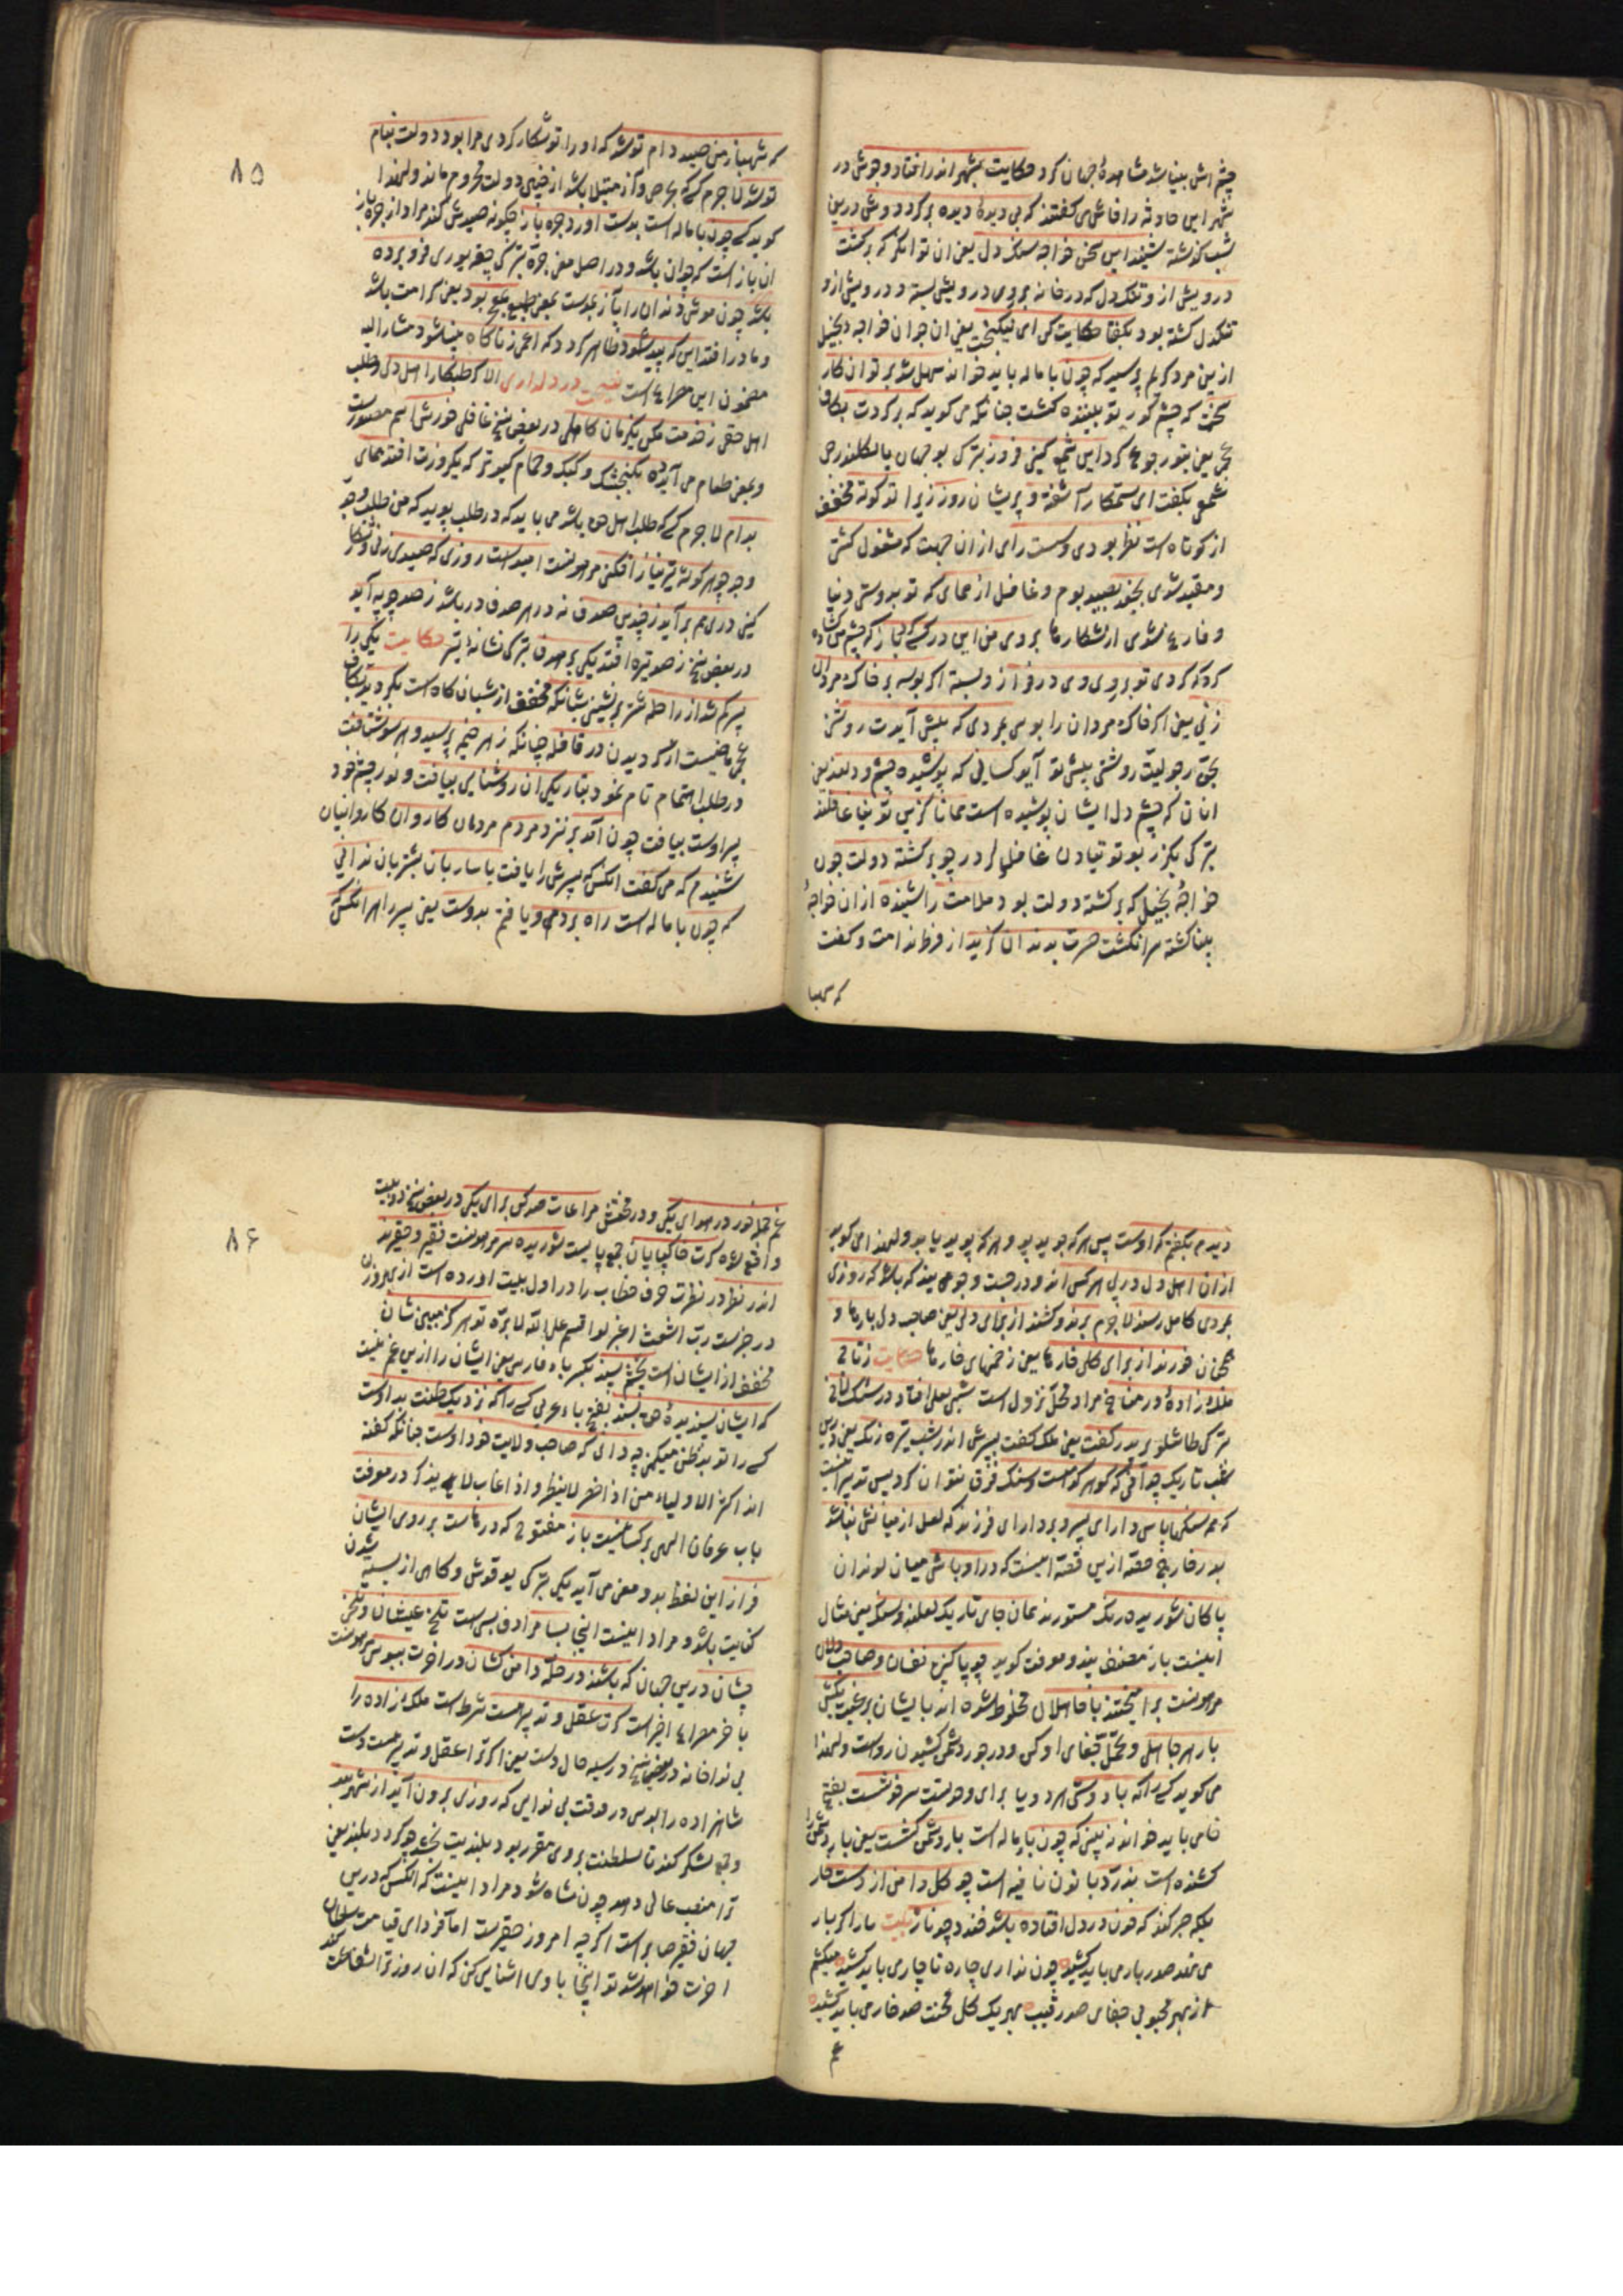 چشم اش بینا شد مشاهدهٔ جهان کرد حکایت بشهر اندر افتاد و جوش در
شهر این حادثه را فاش می کفتند که بی دیدهٔ دیده بر کرد دوش درین
شب کذشته شنید این سخن خواجه سنک دل یعنی ان توانکر که برکشت
درویش از و تنکدل که در خانه بر وی درویش بسته و درویش از و
تنکدل کشته بود بکفتا حکایت کن ای نیکبخت یعنی ان جوان خواجه بخیل
ازین مرد کریم پرسید که چون با ماله باید خواند سهل شد بر تو ان کار
سخت که چشم کور تو بیننده کشت چنانکه می کوید که بر کردت بکاف
عجمی یعنی بتو رجوع کرد این شمع کیتی فروز بترکی بو جهان یالکلندرجی
شمعی بکفت ای ستمکار آشفته و پریشان روز زیرا تو کوته مخفف
از کوتاه است نظر بودی و سست رای از ان جهت که مشغول کشتی
و مقید شدی بجغد بصید بوم و غافل از همای که تو بدوستی دنیا
و فارغ نشدی از شکار ما بروی من این در کسی کرد باز که چشم من کشاده
کرد که کردی تو بر وی وی در فراز و بسته اکر بوسه بر خاک مردان
زنی یعنی اکر خاک مردان را بوسی بمردی که پیش آیدت روشنی
بحق رجولیت روشنی پیش تو آید کسانی که پوشیده چشم و دلند یعنی
انان که چشم دل ایشان پوشیده است همانا کزین توتیا غافلند
بترکی بکزر بو توتیادن غافللر در چو برکشته دولت چون
خواجهٔ بخیل که برکشته دولت بود ملامت را شنیده از ان خواجه
بینا کشته سر انکشت حسرت بدندان کزید از فرط ندامت و کفت
که شهبا
۸۵
که شهباز من صید دام تو شد که او را تو شکار کردی مرا بود دولت بنام
تو شد لاجرم کسی که بحرص و آز مبتلا باشد از چنین دولت محروم ماند ولهذا
کوید کسی چون با ماله است بدست اورد جره باز چکونه صیدش کند مراد از جره باز
ان باز است که جوان باشد و در اصل معنی جره بترکی چغریوری فرو برده
باشد چون موش دندان را بآز بموست بمعنی طبع بمع بود یعنی کرامت باشد
و مادر افتد این که پیدا شود ظاهر کردد که اعمی زناکاه بینا شود مشار الیه
مضمون این مصراع است نصیحت در دلداری الا کر طلبکار اهل دلی و طلب
اهل حقی ز خدمت مکن یکزمان غافلی در بعض نسخ غافلی خورش اسم مصدرست
و بمعنی طعام می آید ده بکنجشک و کبک و حمام کبوتر که یکروزت افتد همای
بدام لاجرم کسی که طلب اهل حق باشد می باید که در طلب پوید که من طلب و جد
وجد چو هر کوشه تیر نیاز افکنی مرهونست امید است روزی که صیدی زنی و شکار
کنی دری هم بر آید ز چندین صدف نه در هر صدف در باشد ز صد چوبه آید
در بعض نسخ ز صد تیره افتد یکی بر هدف بترکی نشانه یتر حکایت یکی را
پسر کم شد از راحله شتر بر نشینی شبانکه مخفف از شبان کاه است بکردید بکاف
عجمی ماضیست از کردیدن در قافله چنانکه ز هر خیمه پرسید و هر سو شتافت
در طلب اهتمام تام نمود بتاریکی ان روشنایی بیافت و نور چشم خود
پسر اوست بیافت چون آمد بر نزد مردم مردمان کاروان کاروانیان
شنیدم که می کفت انکس که پسرش را یافت با ساربان بشتربان ندانی
که چون با ماله است راه بردم و یافتم بدوست یعنی پسر را هر انکس که
دیدم بکفتم که اوست پس هر که جوید و هر که پوید یابد ولهذا می کوید
از ان اهل دل در پی هر کس اند و در جست و جوی بیند که باشد که روزی
بمردی کامل رسند لاجرم برند و کشند از برای دلی یعنی صاحب دل بارها و
محن خورند از برای کلی خارها یعنی زخمهای خارها حکایت ز تاج
ملک زادهٔ در مناخ مراد محل نزول است شبی لعلی افتاد در سنک لاخ
بترکی طاشلو یر پدر کفت یعنی ملک کفت بپسرش اندر شب تیره رنک یعنی درین
شب تاریک چه دانی که کوهر کدامست و سنک فرق نتوان کرد پس تدبیر اینست
که همه سنکها پاس دار ای پسر و بردار ای فرزند که لعل از میانش نباشد
بدر خارج حصه ازین قصه اینست که در اوباش میان لوندان
پاکان شوریده رنک مستورند همان جای تاریک لعلند و سنک یعنی مثال
اینست باز مصنف پند و موعظت کوید چو پاکیزه نفسان و صاحب دلان
مرهونست بر امیختند با جاهلان مخلوط شده اند با ایشان برغبت بکش
بار هر جاهل و تحمل جفای او کن و در جور دشمن کشیدن رواست ولهذا
می کوید کسی را که با دوستی هر دو یا برای وحدتست سر خوشست بفتح
خا می باید خواند نه بینی که چون بار ماله است بار دشمن کشست یعنی بار دشمن را
کشنده است بدرد با نون نافیه است چو کل دامن از دست خار
بلکه صبر کند که خون در دل افتاده باشد خندد چو نار بیت مارا کر بار
می نهد صد بار می باید کشید چون نداری چاره ناچار می باید کشید میکشم
از بهر محبوبی جفای صد رقیب بهر یک کل محنت صد خار می باید کشید
غم
۸۶
غم جمله خور در هوای یکی و در محبتش مراعات صد کس برای یکی در بعض نسخ دو بیت
واقع لاه کرت خاکپایان جمع پاییست شوریده سر مرهونست فقیر و حقیرند
اندر نظر در نظرت حرف خطاب را در اول بیت اورده است از بهر وزن
در خبرست رب اشعث اغبر لو اقسم علی الله لابره تو هرکز مبین شان
مخفف از ایشان است بچشم پسند بکسر باء فارسی یعنی ایشان را ازین غم نیست
که ایشان پسندیدهٔ حق بسند بفتح باء عربی کسی را که نزدیک ظنت بد اوست
کسی را تو بد ظن میکنی چه دانی که صاحب ولایت خود اوست چنانکه کفته
اند اکثر الاولیاء من اذا حضر لا ینظر و اذا غاب لا یذکر در معرفت
باب عرفان الهی بر کسانیست باز مفتوح که درهاست بر روی ایشان
فراز این لفظ بدو معنی می آید یکی بترکی یوقوش و کاهی از بسته شدن
کنایت باشد و مراد اینست اینجا بسا مرادف بسی است تلخ عیشان و تلخی
چشان درین جهان که باشند در حله دامن کشان در اخرت ببوسی مرهونست
با خر مصراع اخر است کرت عقل و تدبیر هست شرط است ملک زاده را
بی نوا خانه در بعض نسخ در سیه حال دست یعنی اکر ترا عقل و تدبیر هست دست
شاهزاده را ببوس در وقت بی نوایی که روزی برون آید از شهر بند
و جمع لشکر کند تا سلطنت بر وی مقرر بود بلندیت بخشد چو کردد بلند یعنی
ترا منصب عالی دهد چون شاه شود مراد اینست که انکس که درین
جهان فقیر صابر است اکر چه امروز حقیرست اما فردای قیامت سلطان
اخرت خواهد شد تو اینجا با وی اشنایی کن که ان روز ترا شفاعت کند